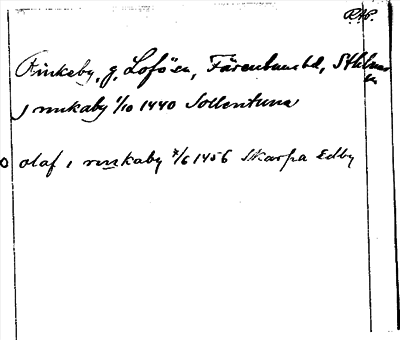 RAP.
Rinkeby, g, Lofö sn, Färentuna hd, Sthlms
ln
J rinkaby 1/10 1440 Sollentuna
olaf i rinkaby 7/6 1456 Skarpa Edby